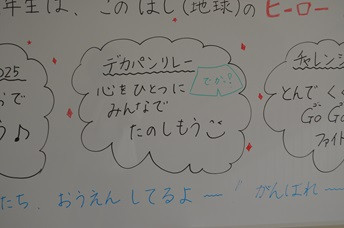 年生は、このほし(地球)のヒーロー
2025
デカパンリレー
でかっ!
心をひとつに
みんなで
たのしもう
チャレンジ
とんで く
GO GO
ファイト
たち、おうえんしてるよー がんばれー